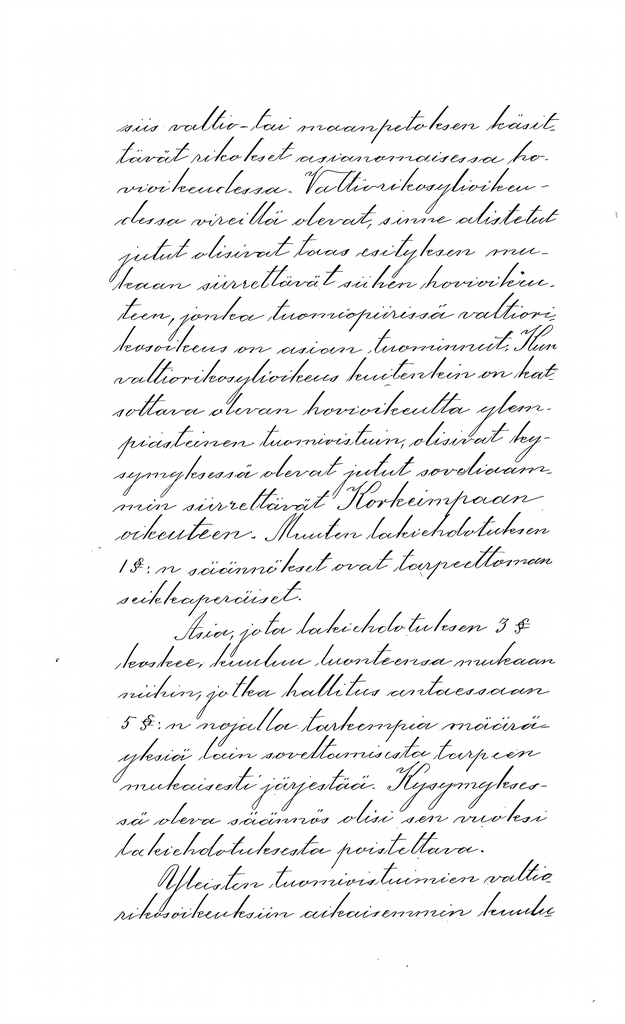 siis valtio- tai maanpetoksen käsit-
tävät rikokset asianomaisessa ho-
vioikeudessa. Valtiorikosylioikeu-
dessa vireillä olevat, sinne alistetut
jutut olisivat taas esityksen mu-
kaan siirrettävät siihen hovioikeu-
teen, jonka tuomiopiirissä valtiori-
kosoikeus on asian tuominnut. Kun
valtiorikosylioikeus kuitenkin on kat-
sottava olevan hovioikeutta ylem-
piasteinen tuomioistuin, olisivat ky-
symyksessä olevat jutut soveliaam-
min siirrettävät Korkeimpaan
oikeuteen. Muuten lakiehdotuksen
1 §:n säännökset ovat tarpeettoman
seikkaperäiset.
Asia, jota lakiehdotuksen 3 §
koskee, kuuluu luonteensa mukaan
niihin, jotka hallitus antaessaan
5 §:n nojalla tarkempia määrä-
yksiä lain soveltamisesta tarpeen
mukaisesti järjestää. Kysymykses-
sä oleva säännös olisi sen vuoksi
lakiehdotuksesta poistettava.
Yleisten tuomioistuimien valtio-
rikosoikeuksiin aikaisemmin kuulu-